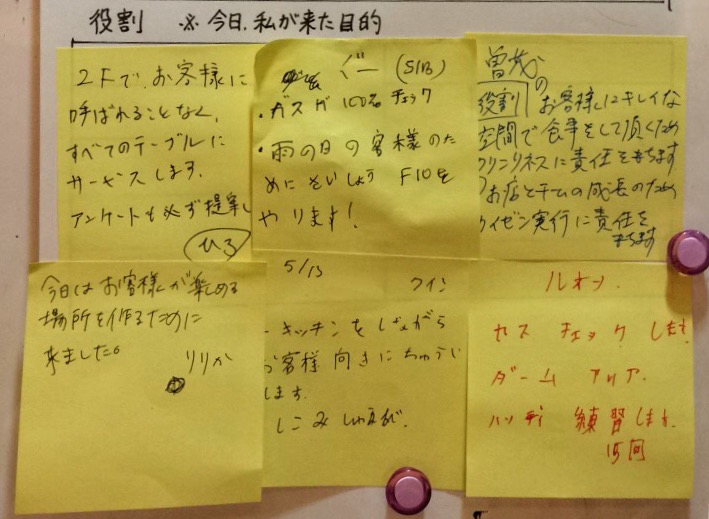 役割 ※今日、私が来た目的
2Fで、お客様に
呼ばれることなく、
すべてのテーブルに
サービスします。
アンケートも必ず提案し
ひろ
グー (5/13)
・ガスガ 100% チェック
・雨の日の客様のた
めにそいしょう F10を
やります!
曽茂の
役割 お客様にキレイな
空間で食事をして頂くため
クリンリネスに責任を持ちます
お店とチームの成長のため
カイゼン実行に責任を
持ちます
今日はお客様が楽しめる
場所を作るために
来ました。
りりか
5/13 ウイン
キッチンをしながら
お客様向きにちゅうい
します。
しこみ
ルオン.
セス チェック します.
ダーム アリア.
ハンディ 練習します.
15回